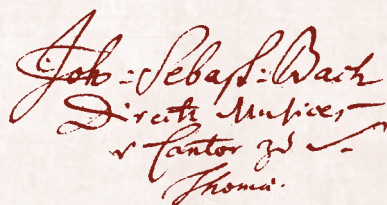 Joh: Sebast: Bach
Direct: Musices
v Cantor zu S.
Thomae.